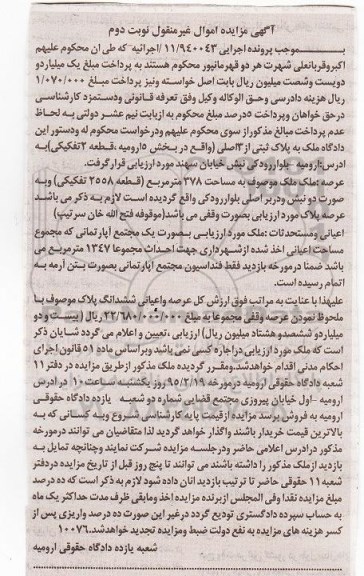 آگهی مزایده اموال غیرمنقول نوبت دوم
بـــــموجب پرونده اجرایی ۱۱/۹۴۰۰۴۳ /اجرائیه که طی ان محکوم علیهم
اکبروقربانعلی شهرت هر دو قهرمانپور محکوم هستند به پرداخت مبلغ یک میلیاردو
دویست وشصت میلیون ریال بابت اصل خواسته ونیز پرداخت مبلغ ۱/۰۷۰/۰۰۰
ریال هزینه دادرسی وحق الوکاله وکیل وفق تعرفه قانونی ودستمزد کارشناسی
درحق خواهان وپرداخت ۵درصد مبلغ محکوم به ازبابت نیم عشر دولتی به لحاظ
عدم پرداخت مبلغ مذکوراز سوی محکوم علیهم ودرخواست محکوم له ودستور این
دادگاه ملک به پلاک ثبتی از ۳اصلی (واقع در بخش ۵ارومیه ،قطعه ۲تفکیکی)به
ادرس:ارومیه –بلواررودکی نبش خیابان سهند مورد ارزیابی قرارگرفت.
عرصه :ملک ملک موصوف به مساحت ۳۷۸ مترمربع (قطعه ۲۵۵۸ تفکیکی) وبه
صورت دو نبش ودربر اصلی بلواررودکی واقع گردیده است لازم به ذکر می باشد
عرصه پلاک مورد ارزیابی بصورت وقفی می باشد(موقوفه فتح الله خان سرتیپ)
اعیانی ومستحدثات :ملک مورد ارزیابی بصورت یک مجتمع آپارتمانی که مجموع
مساحت اعیانی اخذ شده ازشهرداری جهت احداث مجموعا ۱۳۴۷ مترمربع می
باشد ضمنا درمورخه بازدید فقط فنداسیون مجتمع آپارتمانی بصورت بتن آرمه به
اتمام رسیده است.
علیهذا با عنایت به مراتب فوق ارزش کل عرصه واعیانی ششدانگ پلاک موصوف با
ملحوظ نمودن عرصه وقفی مجموعا به مبلغ ۲۲/۶۸۰/۰۰۰/۰۰۰ ریال (بیست و دو
میلیاردو ششصدو هشتاد میلیون ریال) ارزیابی ،تعیین و اعلام می گردد شایان ذکر
است که ملک مورد ارزیابی دراجاره کسی نمی باشد وبراساس ماده ۵۱ قانون اجرای
احکام مدنی اقدام خواهدشد.ومقرر گردیده ملک مذکور ازطریق مزایده در دفتر ۱۱
شعبه دادگاه حقوقی ارومیه درمورخه ۹۵/۲/۱۹ روز یکشنبه ساعت ۱۰ در ادرس
ارومیه –اول خیابان پیروزی مجتمع قضایی شماره دو شعبه یازده دادگاه حقوقی
ارومیه به فروش برسد مزایده ازقیمت پایه کارشناسی شروع وبه کسانی که به
بالاترین قیمت خریدار باشند واگذار خواهد گردید لذا متقاضیان می توانند درمورخه
مذکور درادرس اعلامی حاضر ودرجلسه مزایده شرکت نمایند وچنانچه تمایل به
بازدید ازملک مذکور را داشته باشند می توانند تا پنج روز قبل از تاریخ مزایده دردفتر
شعبه ۱۱ حقوقی حاضر تا ترتیب بازدید انان داده شود لازم به ذکر است که ده درصد
مبلغ مزایده نقدا وفی المجلس ازبرنده مزایده اخذ ومابقی ظرف مدت حداکثر یک ماه
به حساب سپرده دادگستری تودیع گردد درغیر این صورت ده درصد واریزی پس از
کسر هزینه های مزایده به نفع دولت ضبط ومزایده تجدید خواهدشد. ۱۰۰۷۶
شعبه یازده دادگاه حقوقی ارومیه